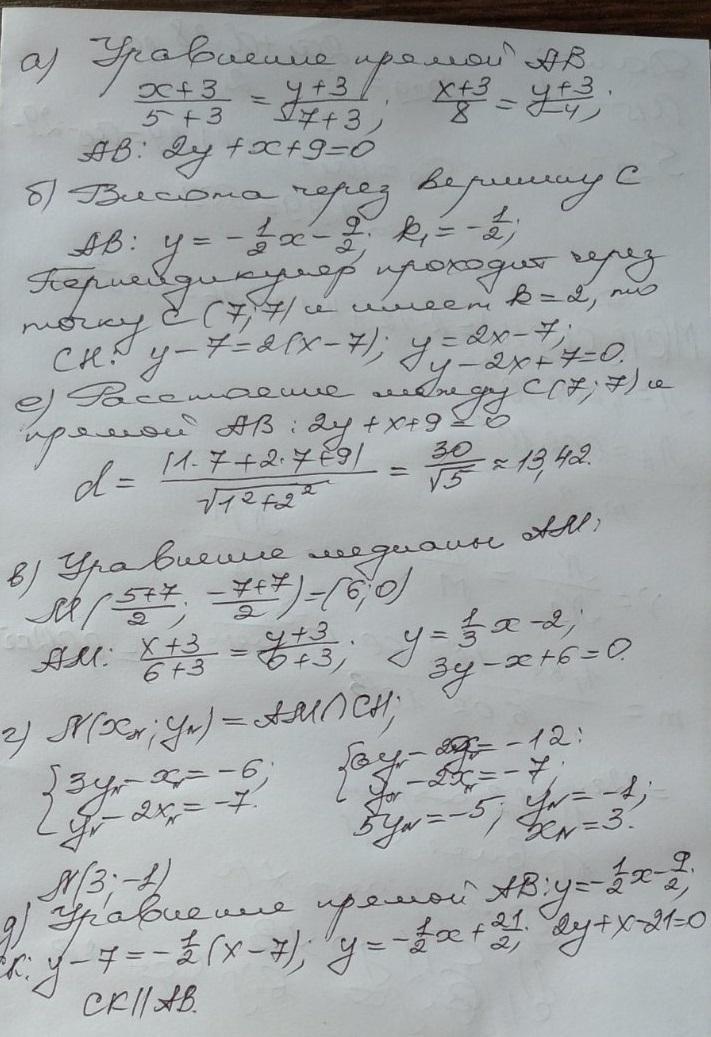 а) Уравнение прямой АВ
(x+3)/(5+3) = (y+3)/(-7+3); (x+3)/8 = (y+3)/(-4);
АВ: 2y+x+9=0
б) Высота через вершину С
АВ: y = -1/2 x - 9/2; k₁ = -1/2;
Перпендикуляр проходит через
точку С(7;7) и имеет k=2, то
СН: y-7=2(x-7); y=2x-7;
y-2x+7=0.
е) Расстояние между С(7;7) и
прямой АВ: 2y+x+9=0
d = |1·7+2·7+9| / √(1²+2²) = 30/√5 ≈ 13,42.
в) Уравнение медианы АМ;
М((5+7)/2; (-7+7)/2) = (6;0)
АМ: (x+3)/(6+3) = (y+3)/(6+3); y = 1/3 x - 2;
3y-x+6=0.
г) N(x_N; y_N) = АМ∩СН;
{3y_N - x_N = -6; {6y_N - 2x_N = -12:
y_N - 2x_N = -7. y_N - 2x_N = -7;
5y_N = -5; y_N = -1;
x_N = 3.
N(3;-1)
д) Уравнение прямой АВ: y = -1/2 x - 9/2;
СК: y-7 = -1/2 (x-7); y = -1/2 x + 21/2; 2y+x-21=0
СК||АВ.